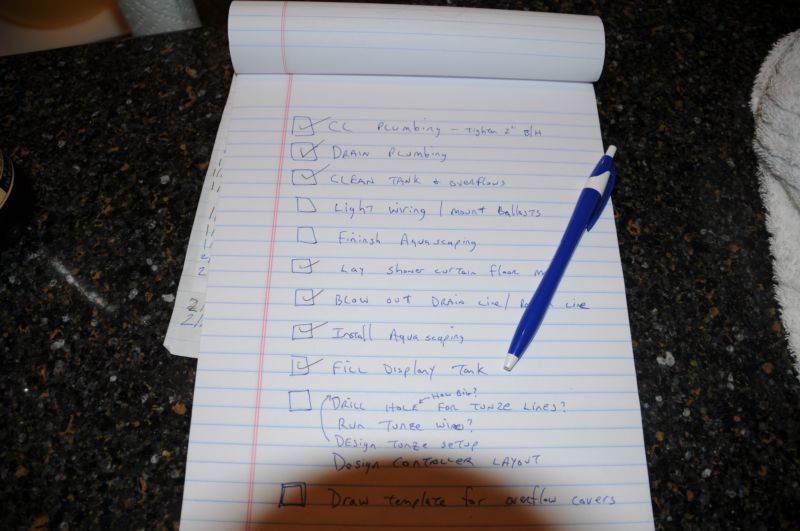 CL Plumbing - Tighten 2" B/H
Drain Plumbing
Clean Tank & overflows
Light wiring / mount Ballasts
Fininsh Aquascaping
Lay shower curtain floor
Blow out Drain Line / Line
Install Aquascaping
Fill Display Tank
How Big?
Drill Hole For Tunze Lines?
Run Tunze wire?
Design Tunze setup
Design Controller Layout
Draw template for overflow covers